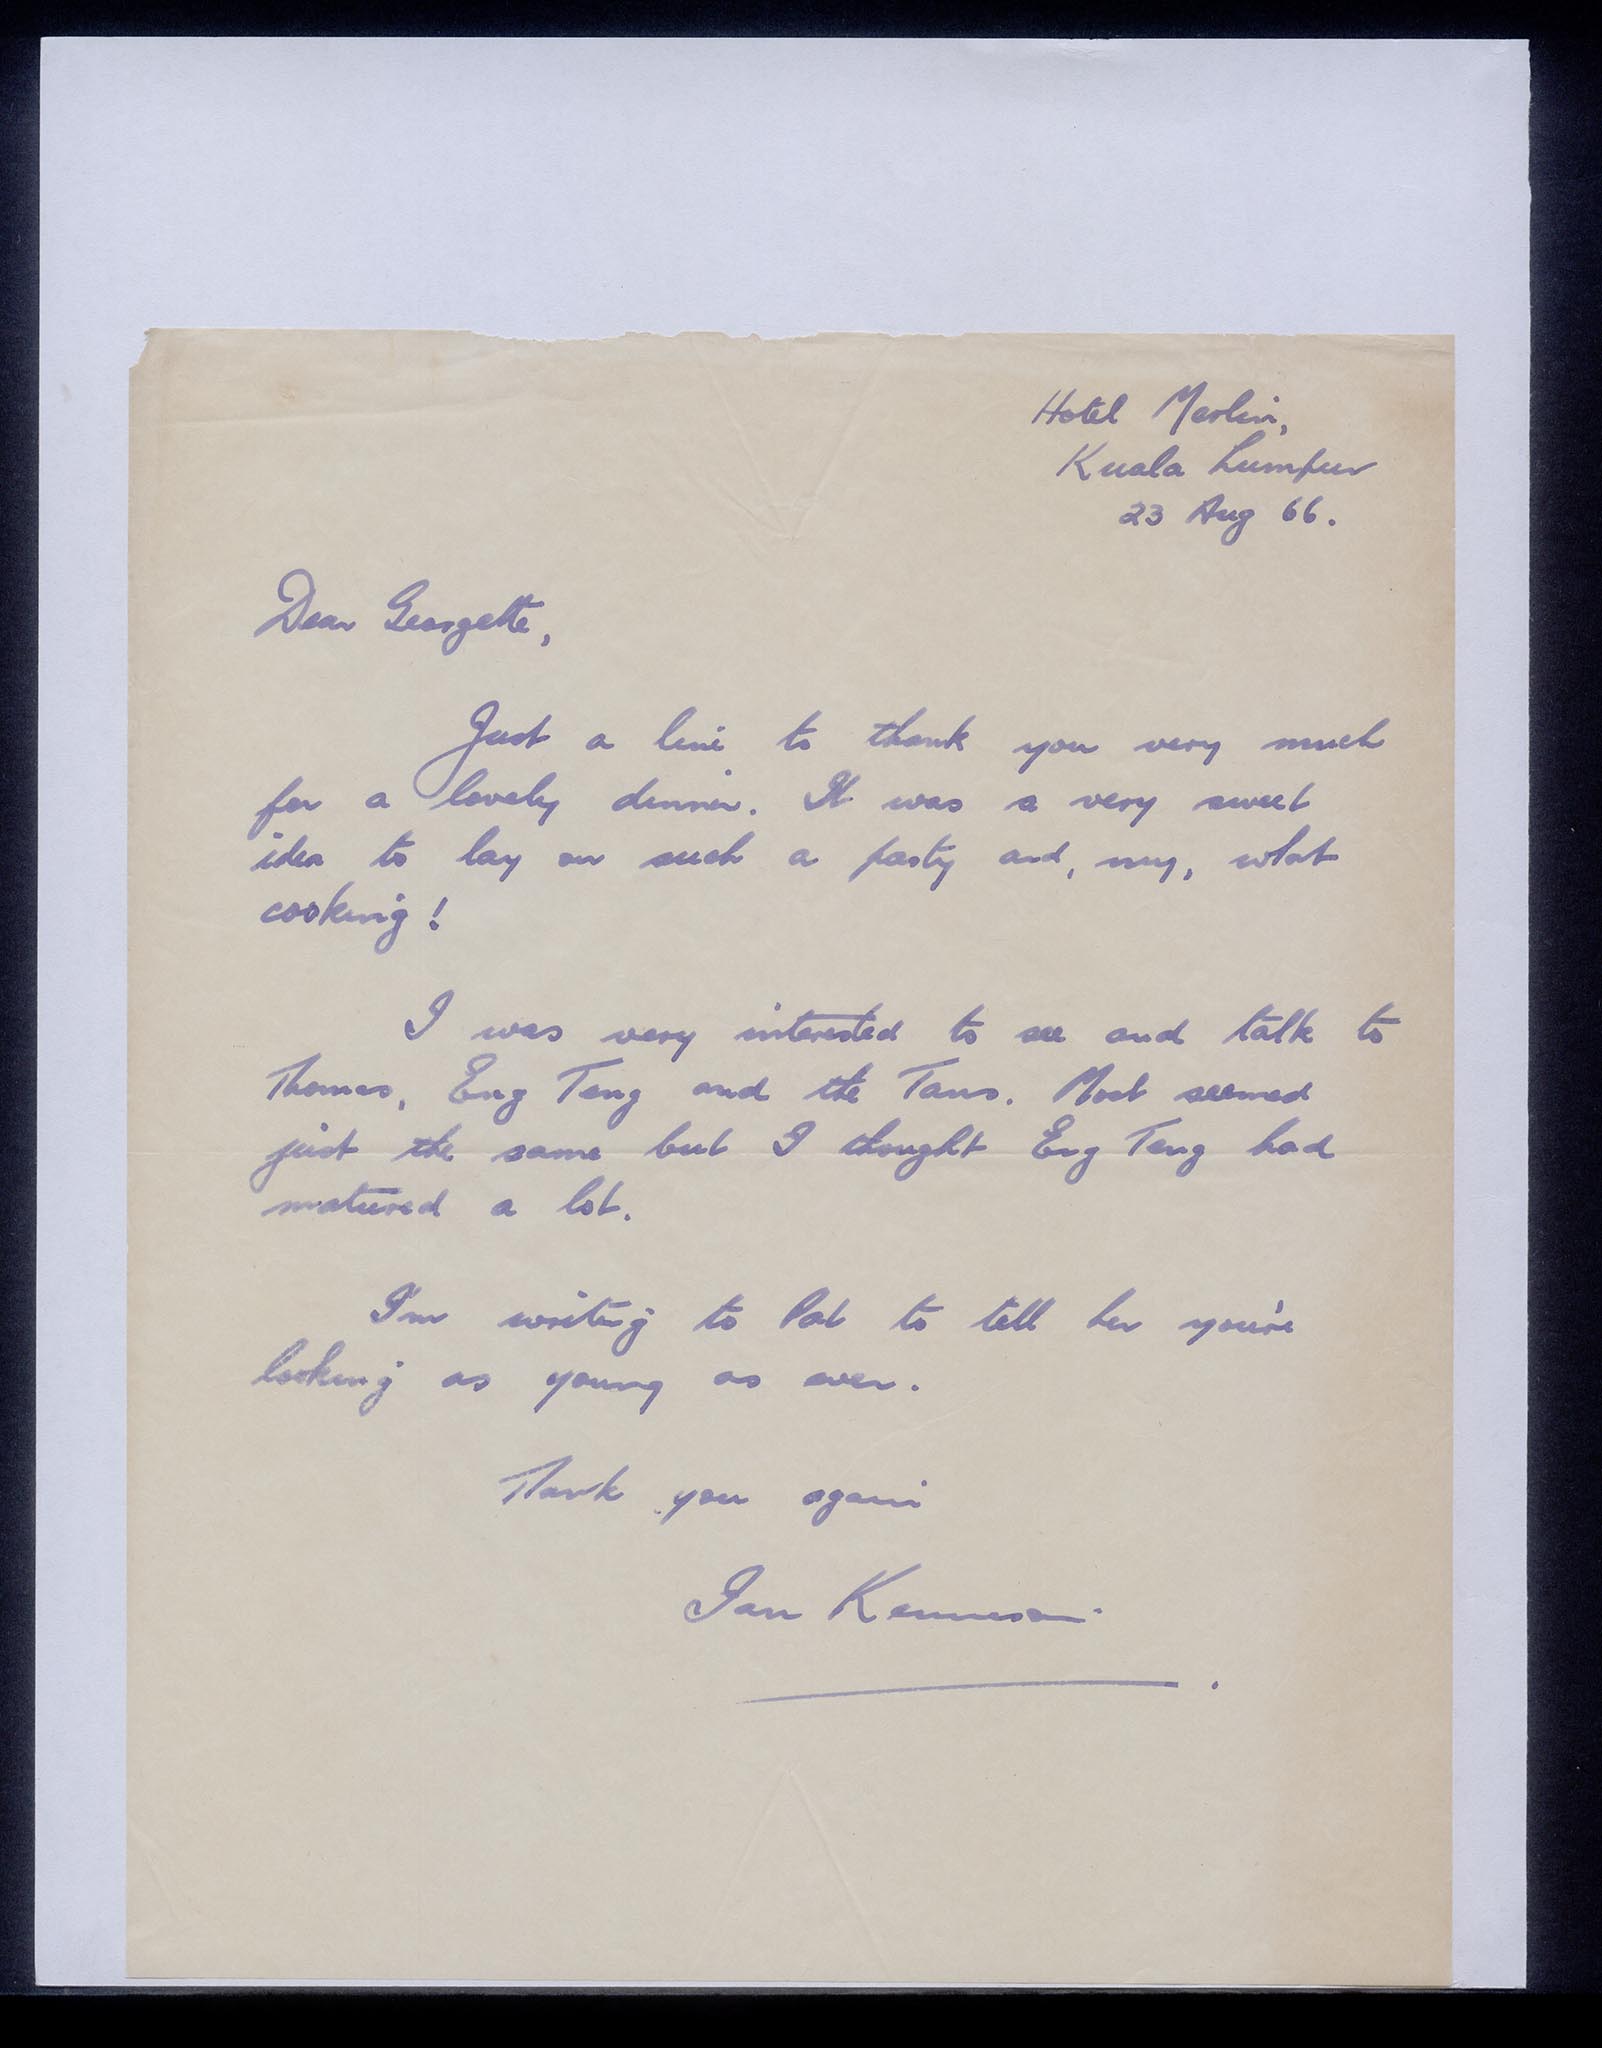 Hotel Merlin,
Kuala Lumpur
23 Aug 66.
Dear Georgette,
Just a line to thank you very much
for a lovely dinner. It was a very sweet
idea to lay on such a party and, my, what
cooking!
I was very interested to see and talk to
Thomas, Eng Teng and the Tans. Most seemed
just the same but I thought Eng Teng had
matured a lot.
I'm writing to Pat to tell her you're
looking as young as ever.
Thank you again
Ian